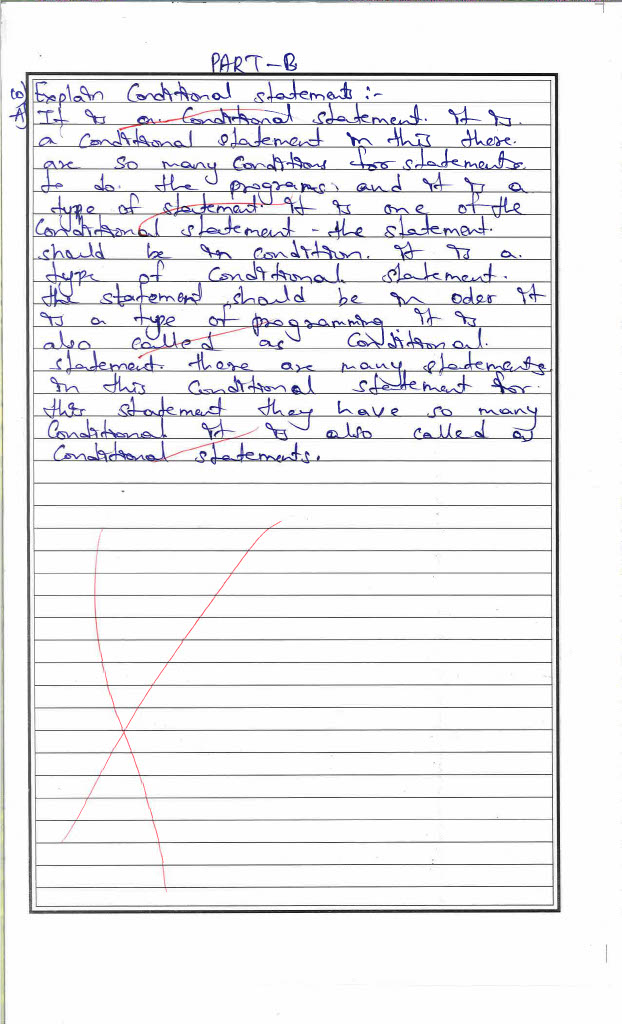 PART-B
Explain Conditional statements :-
A) It is a Conditional statement. It is.
a Conditional statement in this there.
are so many Conditions for statements.
to do. the programs, and it is a
type of statement it is one of the
Conditional statement - the statement.
should be in condition. it is a.
type of Conditional statement.
the statement should be in oder it
is a type of programming it is
also called as Conditional.
statement. there are many statements
in this Conditional statement for.
this statement they have so many
Conditional it is also called as
Conditional statements.